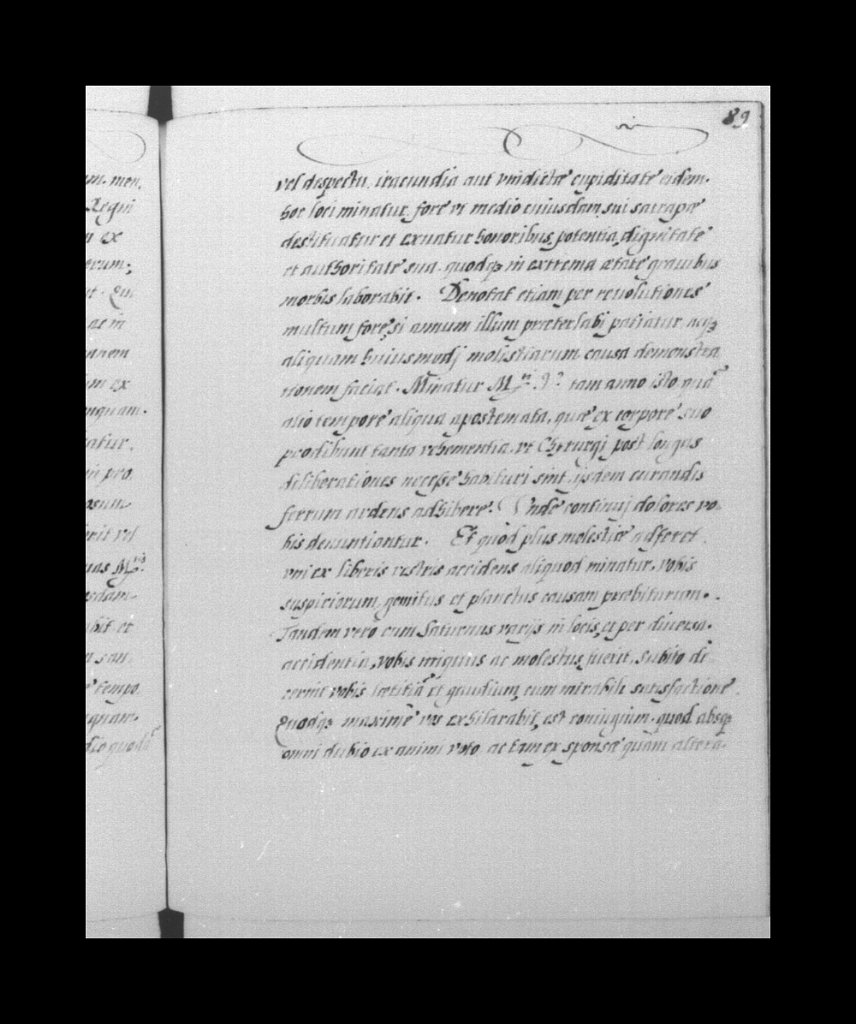 89
vel despectu, iracundia aut vindictæ cupiditate eidem.
hoc loci minatur, fore vt medio cuiusdam sui satrapæ
destituatur et exuatur honoribus, potentia, dignitate
et authoritate sua. quodq; in extrema ætate grauibus
morbis laborabit. Denotat etiam per reuolutiones
multum fore, si annum illum præterlabi patiatur, acq;
aliquam huiusmodj molestiarum causa demonstra
tionem faciat. Minatur tam anno isto quã
alio tempore aliqua apostemata, quæ ex corpore suo
prodibunt tanta vehementia, vt Chyrurgi post longas
diliberationes necesse habituri sint, ijsdem curandis
ferrum ardens adhibere. Vnde continuj dolores vo
bis denuntiantur. Et quod plus molestiæ adferet.
vni ex liberis vestris accidens aliquod minatur, vobis
suspiciorum, gemitus et planctus causam præbiturum.
Tandem vero cum Saturnus varijs in locis, et per diuersa.
accidentia, vobis iniquus ac molestus fuerit, subito di
cernit vobis lætitiã et gaudium, cum mirabili satisfactione.
Quodq; maximè vos exhilarabit, est coniugium. quod absq;
omni dubio ex animi voto, ac tam ex sponsæ quàm altera-
um. men.
Regni
n ex
erum;
ac in
um ex
nquam.
atur.
in pro
erit vel
uas M
sdam
abit et
e tempo